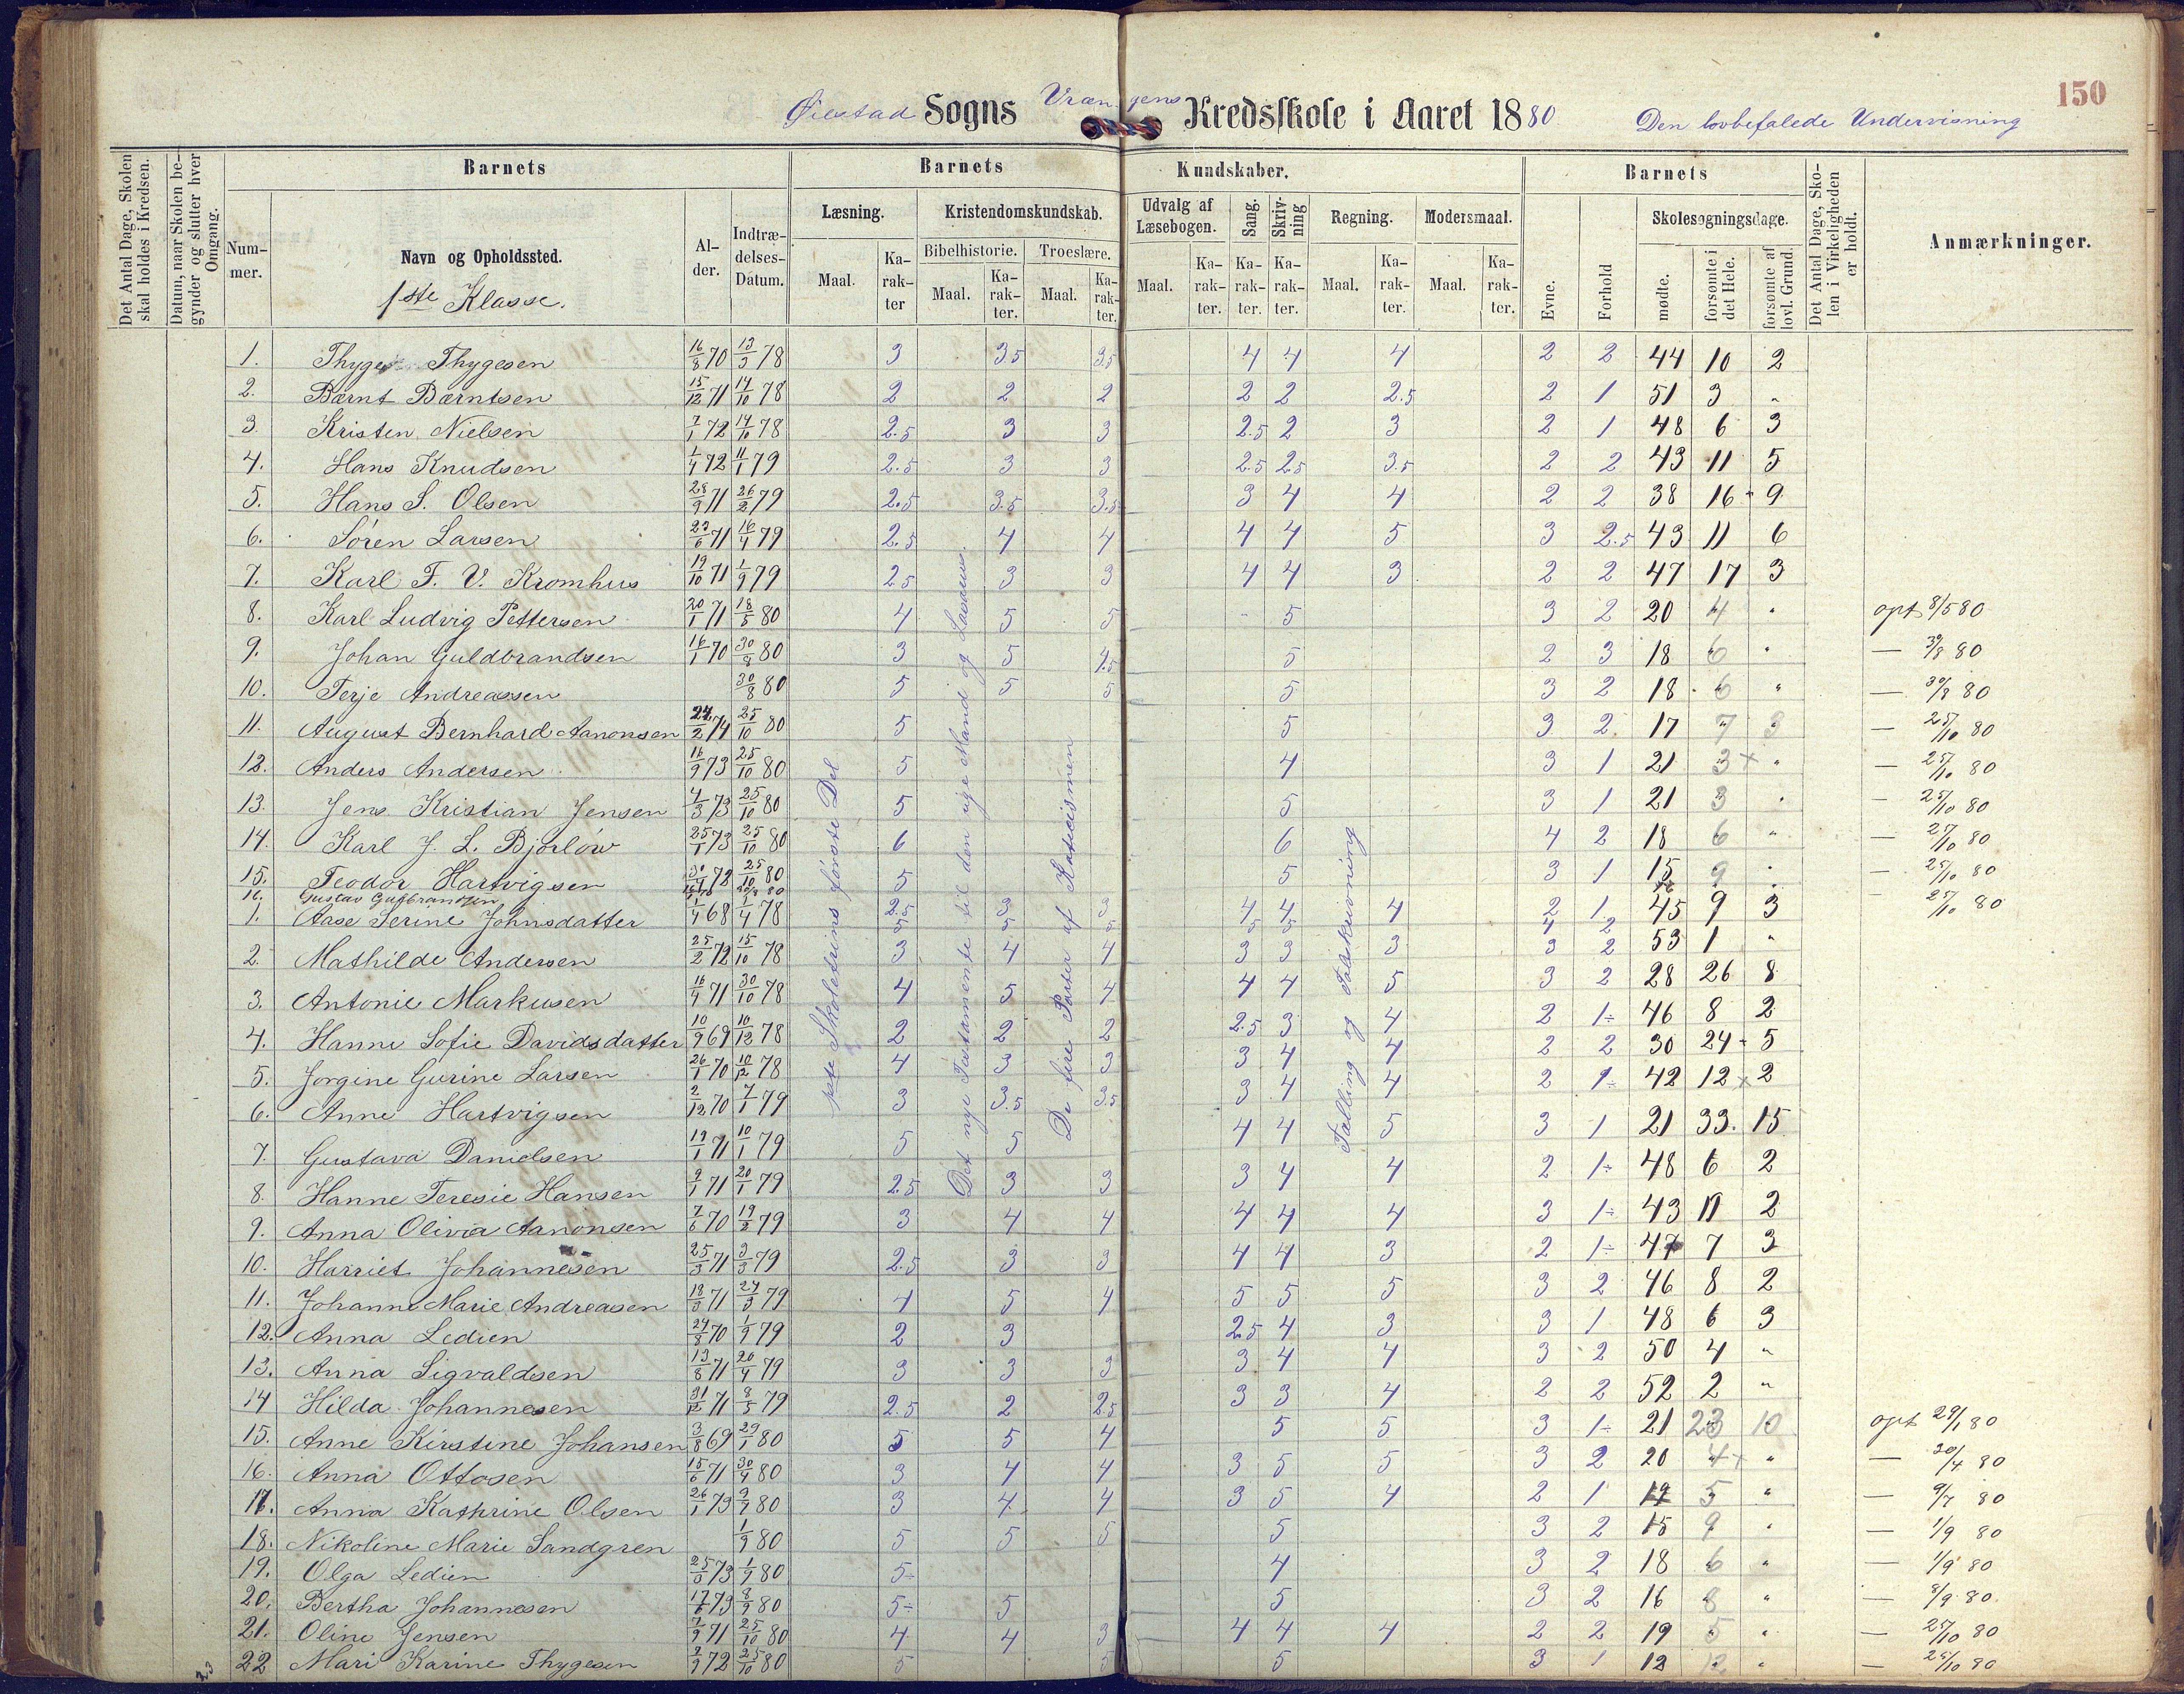 150
Øiestad Sogns Vrængens Kredsskole i Aaret 1880 Den lovbefalede Undervisning
Det Antal Dage, Skolen skal holdes i Kredsen.
Datum, naar Skolen begynder og slutter hver Omgang.
Barnets
Nummer.
Navn og Opholdssted.
1ste Klasse.
Alder.
Indtrædelses-Datum.
Barnets Kundskaber.
Læsning. Maal. Karakter
Kristendomskundskab.
Bibelhistorie. Maal. Karakter.
Troeslære. Maal. Karakter.
Udvalg af Læsebogen. Maal. Karakter.
Sang. Karakter.
Skrivning Karakter.
Regning. Maal. Karakter.
Modersmaal. Maal. Karakter.
Barnets
Evne.
Forhold
Skolesøgningsdage.
mødte.
forsømte i det Hele.
forsømte af lovl. Grund.
Det Antal Dage, Skolen i Virkeligheden er holdt.
Anmærkninger.
1. Thyge Thygesen 16/8 70 13/3 78 3 3.5 3.5 4 4 4 2 2 44 10 2
2. Bærnt Bærntsen 15/12 71 14/10 78 2 2 2 2 2 2.5 2 1 51 3 "
3. Kristen Nielsen 7/1 72 14/10 78 2.5 3 3 2.5 2 3 2 1 48 6 3
4. Hans Knudsen 1/4 72 11/1 79 2.5 3 3 2.5 2.5 3.5 2 2 43 11 5
5. Hans S. Olsen 28/9 71 26/2 79 2.5 3.5 3.5 3 4 4 2 2 38 16 9
6. Sören Larsen 71 16/4 79 2.5 4 4 4 4 5 3 2.5 43 11 6
7. Karl F. V. Kromhus 19/10 71 1/9 79 2.5 3 3 4 4 3 2 2 47 17 3
8. Karl Ludvig Pettersen 20/1 71 18/5 80 4 5 5 5 3 2 20 4 " opt 8/5 80
9. Johan Guldbrandsen 16/1 70 30/8 80 3 5 4.5 5 2 3 18 6 " — 30/8 80
10. Terje Andreassen 30/8 80 5 5 5 5 3 2 18 6 " — 30/8 80
11. August Bernhard Aanonsen 24/2 74 25/10 80 5 5 3 2 17 7 3 — 25/10 80
12. Anders Andersen 16/9 73 25/10 80 5 4 3 1 21 3 " — 25/10 80
13. Jens Kristian Jensen 4/3 73 25/10 80 5 5 3 1 21 3 " — 25/10 80
14. Karl J. L. Bjorlöw 25/1 73 25/10 80 6 6 4 2 18 6 " — 25/10 80
15. Teodor Hartvigsen 30/4 72 25/10 80 5 5 3 1 15 9 " — 25/10 80
16. Gustav Gulbrandsen — 25/10 80
1. Aase Serine Johnsdatter 1/4 68 1/4 78 2.5 3 3 4 4 4 2 1 45 9 3
2. Mathilde Andersen 25/2 72 15/10 78 3 4 4 3 3 3 3 2 53 1 "
3. Antonie Markusen 16/4 71 30/10 78 4 5 4 4 4 5 3 2 28 26 8
4. Hanne Sofie Davidsdatter 10/9 69 10/12 78 2 2 2 2.5 3 4 2 1÷ 46 8 2
5. Jorgine Gurine Larsen 26/1 70 10/12 78 4 3 3 3 4 4 2 2 30 24 5
6. Anne Hartvigsen 2/12 70 7/1 79 3 3.5 3.5 3 4 4 2 1÷ 42 12 2
7. Gustava Danielsen 19/1 71 10/1 79 5 5 4 4 5 3 1 21 33 15
8. Hanne Teresie Hansen 9/1 71 20/1 79 2.5 3 3 3 4 4 2 1÷ 48 6 2
9. Anna Olivia Aanonsen 7/6 70 19/2 79 3 4 4 4 4 4 3 1÷ 43 11 2
10. Harriet Johannesen 25/3 71 3/3 79 2.5 3 3 4 4 3 2 1÷ 47 7 3
11. Johanne Marie Andreasen 18/3 71 24/3 79 4 5 4 5 5 5 3 2 46 8 2
12. Anna Ledien 24/8 70 1/9 79 2 3 2.5 4 3 3 1 48 6 3
13. Anna Sigvaldsen 13/8 71 20/4 79 3 3 3 3 4 4 3 2 50 4 "
14 Hilda Johannesen 31/12 71 8/5 79 2.5 2 2.5 3 3 4 2 2 52 2 "
15. Anne Kirstine Johansen 3/8 69 29/1 80 5 5 4 5 5 3 1÷ 21 23 10 opt 29/1 80
16. Anna Ottosen 15/6 71 30/4 80 3 4 4 3 5 5 3 2 20 4 " — 30/4 80
17. Anna Kathrine Olsen 26/1 73 9/7 80 3 4 4 3 5 4 2 1 19 5 " — 9/7 80
18. Nikoline Marie Sandgren 1/9 80 5 5 5 5 3 2 15 9 " — 1/9 80
19. Olga Ledien 25/3 73 1/9 80 5÷ 4 3 2 18 6 " — 1/9 80
20. Bertha Johannesen 17/6 73 8/9 80 5÷ 5 5 3 2 16 8 " — 8/9 80
21. Oline Jensen 7/9 71 25/10 80 4 4 3 4 4 4 2 2 19 5 " — 25/10 80
22 Mari Karine Thygesen 2/9 72 25/10 80 5 5 5 3 1 12 12 " — 25/10 80
23
1ste Skoletrins første Del
Det nye Testamente til den rige Mand og Lasarus.
De fire Parter af Katecismen
Tælling og Talskrivning